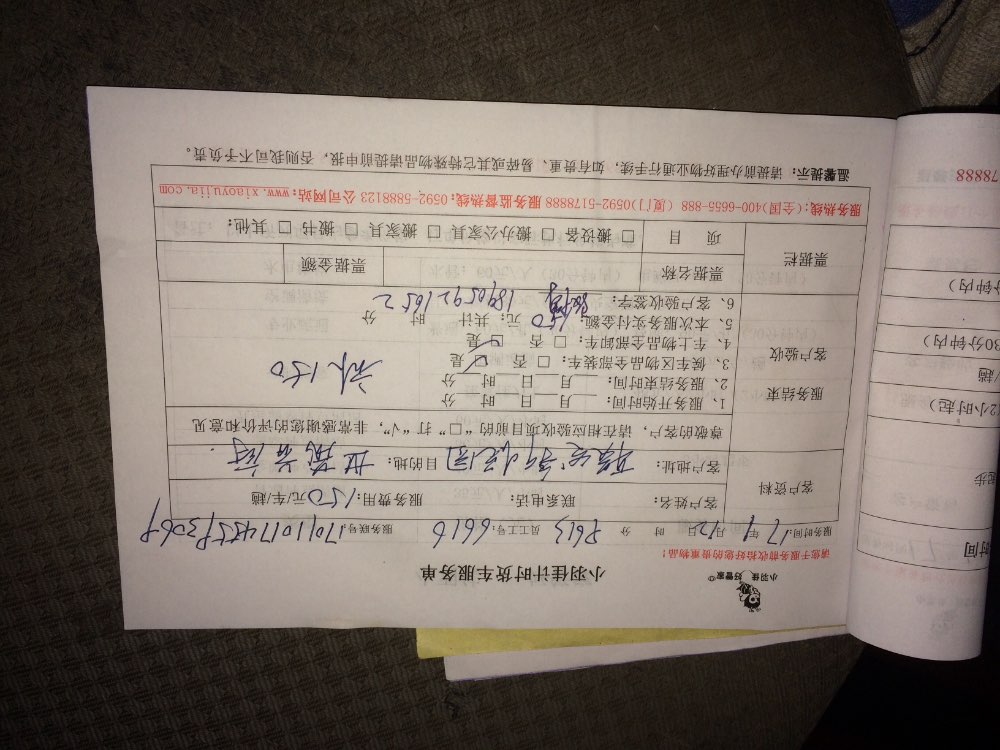 小羽佳 好管家
小羽佳计时货车服务单
请您于服务前收拾好您的贵重物品！
服务时间：17 年 9 月 12 日 时 分 P613 员工工号：6616 服务联号：
客户资料 客户姓名： 联系电话： 服务费用：150元/车/趟
客户地址： 目的地：
尊敬的客户，请在相应验收项目前的“□”打“√”，非常感谢您的评价和意见
服务结束 客户验收
1、服务开始时间： 月 日 时 分
2、服务结束时间： 月 日 时 分
3、候车区物品全部装车：□ 否 □ 是
4、车上物品全部卸车：□ 否 □ 是
5、本次服务实付金额：150 元；共计 时 分
6、客户验收签字： 18905921652
150
票据栏 票据名称 票据金额
项 目 □ 搬设备 □ 搬办公家具 □ 搬家具 □ 搬书 □ 其他：
服务热线：(全国)400-6655-888 (厦门)0592-5178888 服务监督热线：0592-5888123 公司网站：www.xiaoyujia.com
温馨提示：请提前办理好物业通行手续，如有贵重、易碎或其它特殊物品请提前申报，否则我司不予负责。
时间
2小时起)
30分钟内)
分钟内)
78888